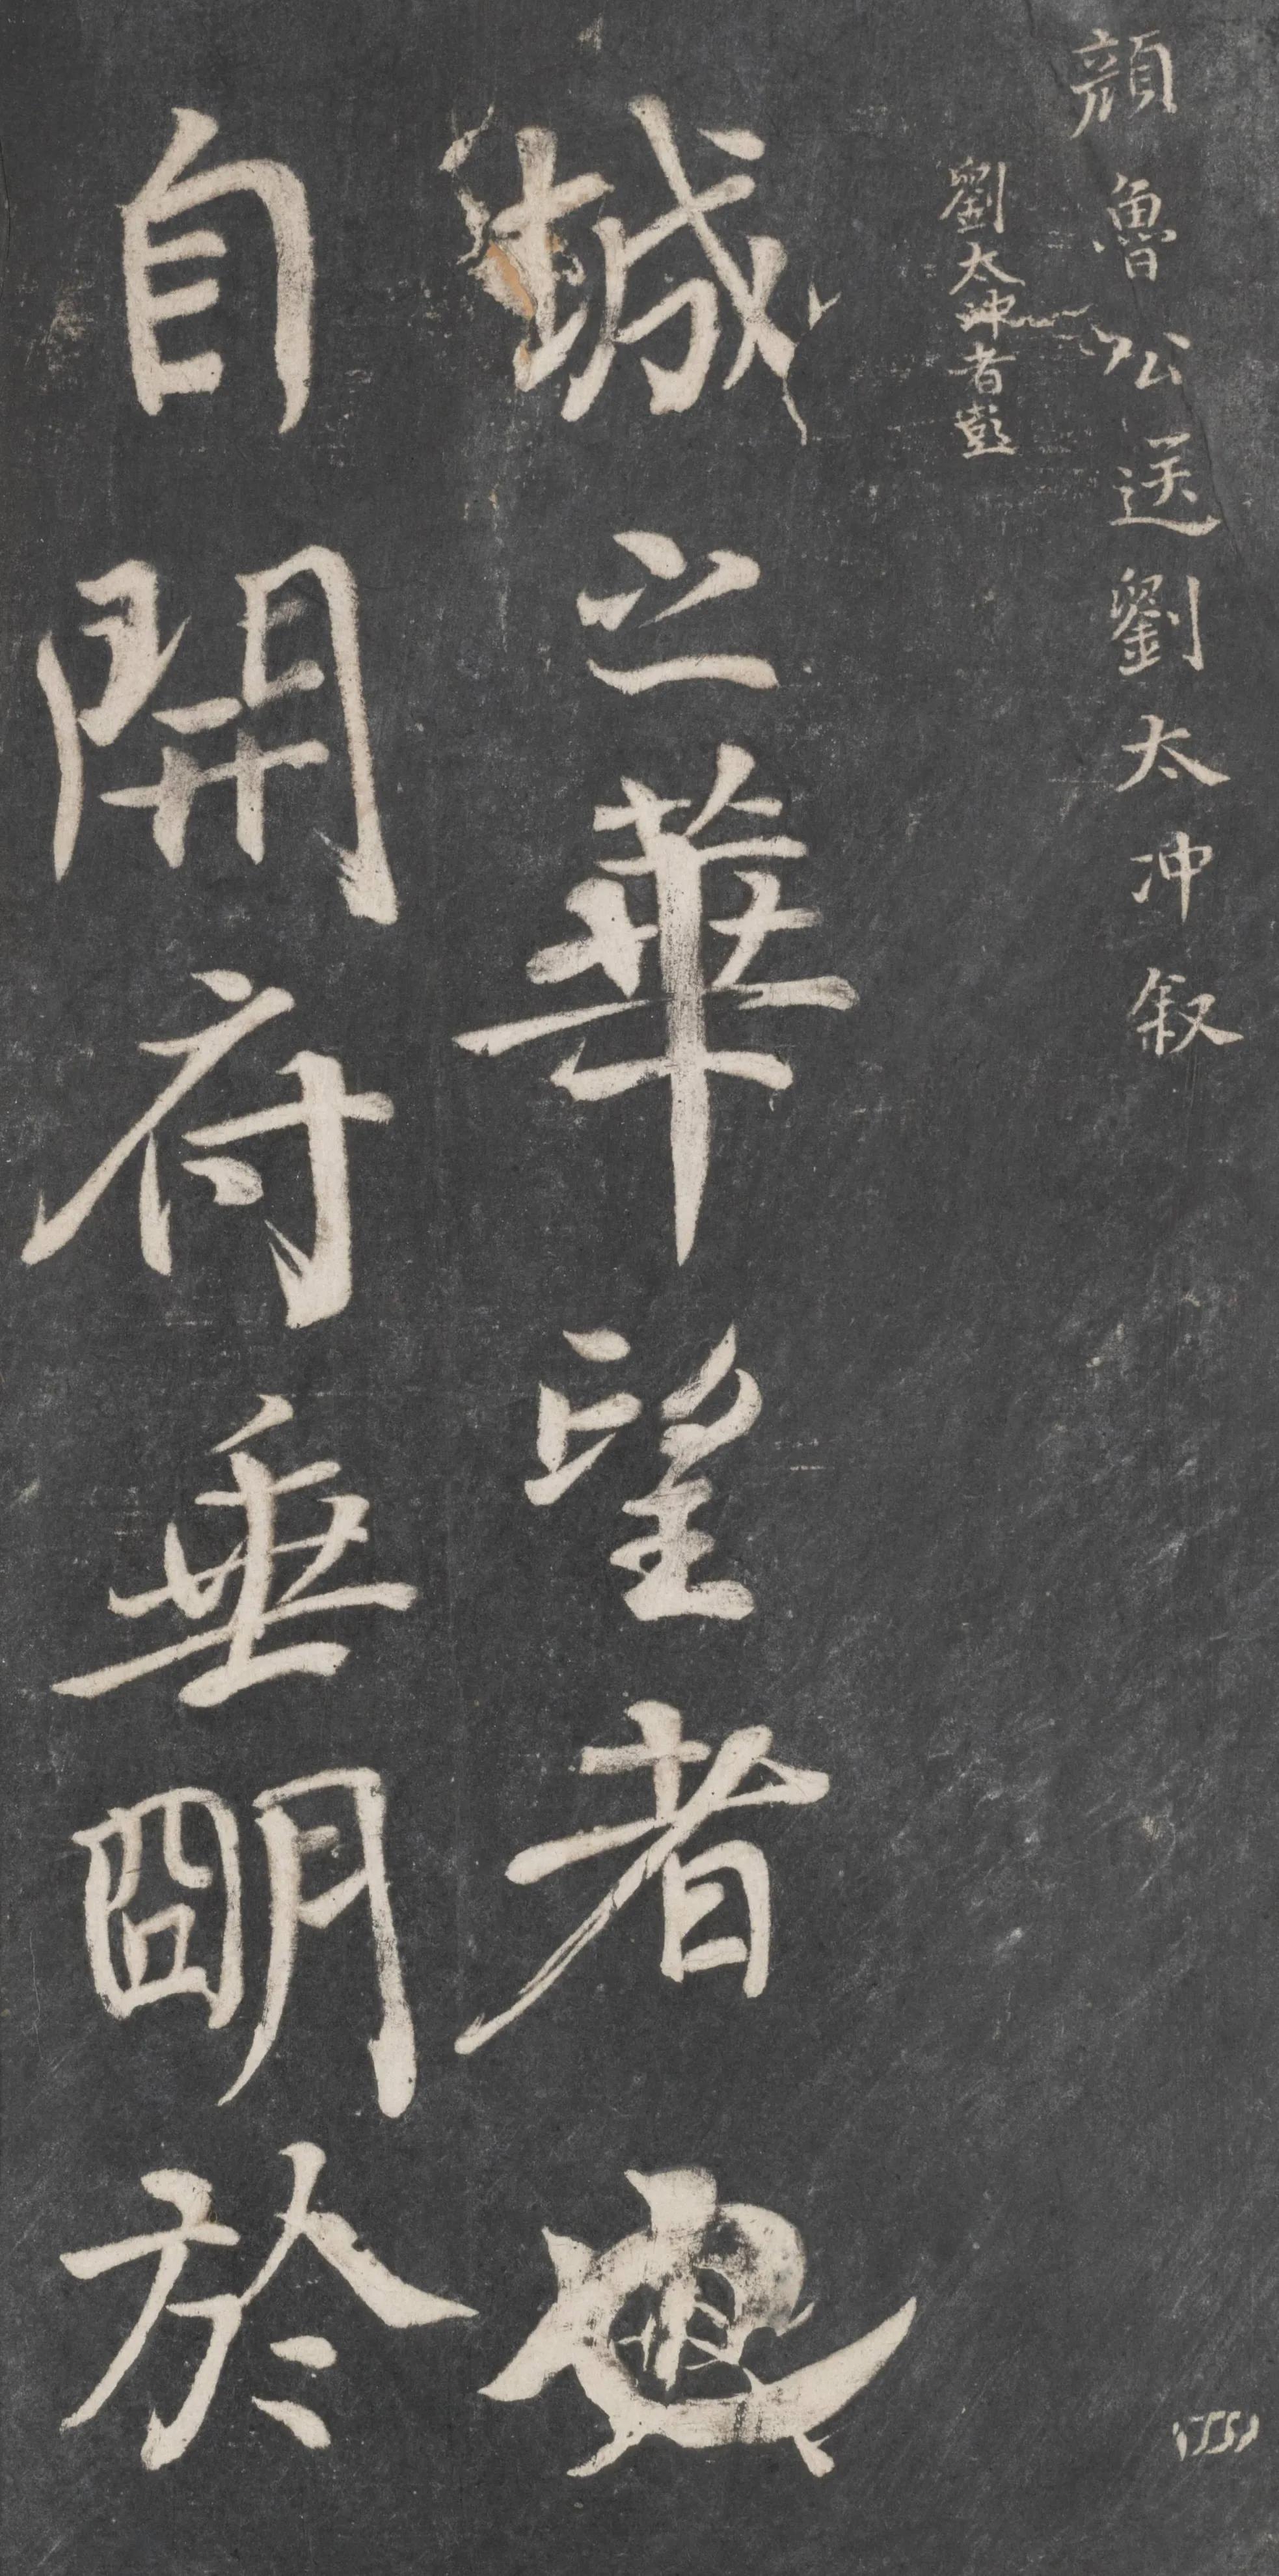 顏魯公送劉太冲叙
劉太冲者彭
城之華望者也
自開府垂明於